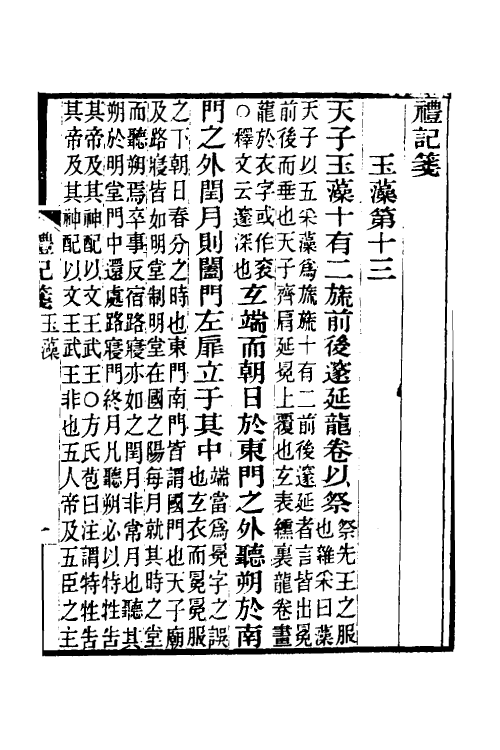 禮記箋
玉藻第十三
天子玉藻十有二旒前後邃延龍卷以祭祭先王之服
也雜采曰藻
天子以五采藻為旒旒十有二前後邃延者言皆出冕
前後而垂也天子齊肩延冕上覆也玄表纁裏龍卷畫
龍於衣字或作衮
○釋文云邃深也
玄端而朝日於東門之外聽朔於南
門之外閏月則闔門左扉立于其中端當為冕字之誤
也玄衣而冕冕服
之下朝日春分之時也東門南門皆謂國門也天子廟
及路寢皆如明堂制明堂在國之陽每月就其時之堂
而聽朔焉卒事反宿路寢亦如之閏月非常月也聽其
朔於明堂門中還處路寢門終月凡聽朔必以特牲告
其帝及其神配以文王武王○方氏苞曰注謂特牲告
其帝及其神配以文王武王非也五人帝及五臣之主
禮記箋 玉藻 一